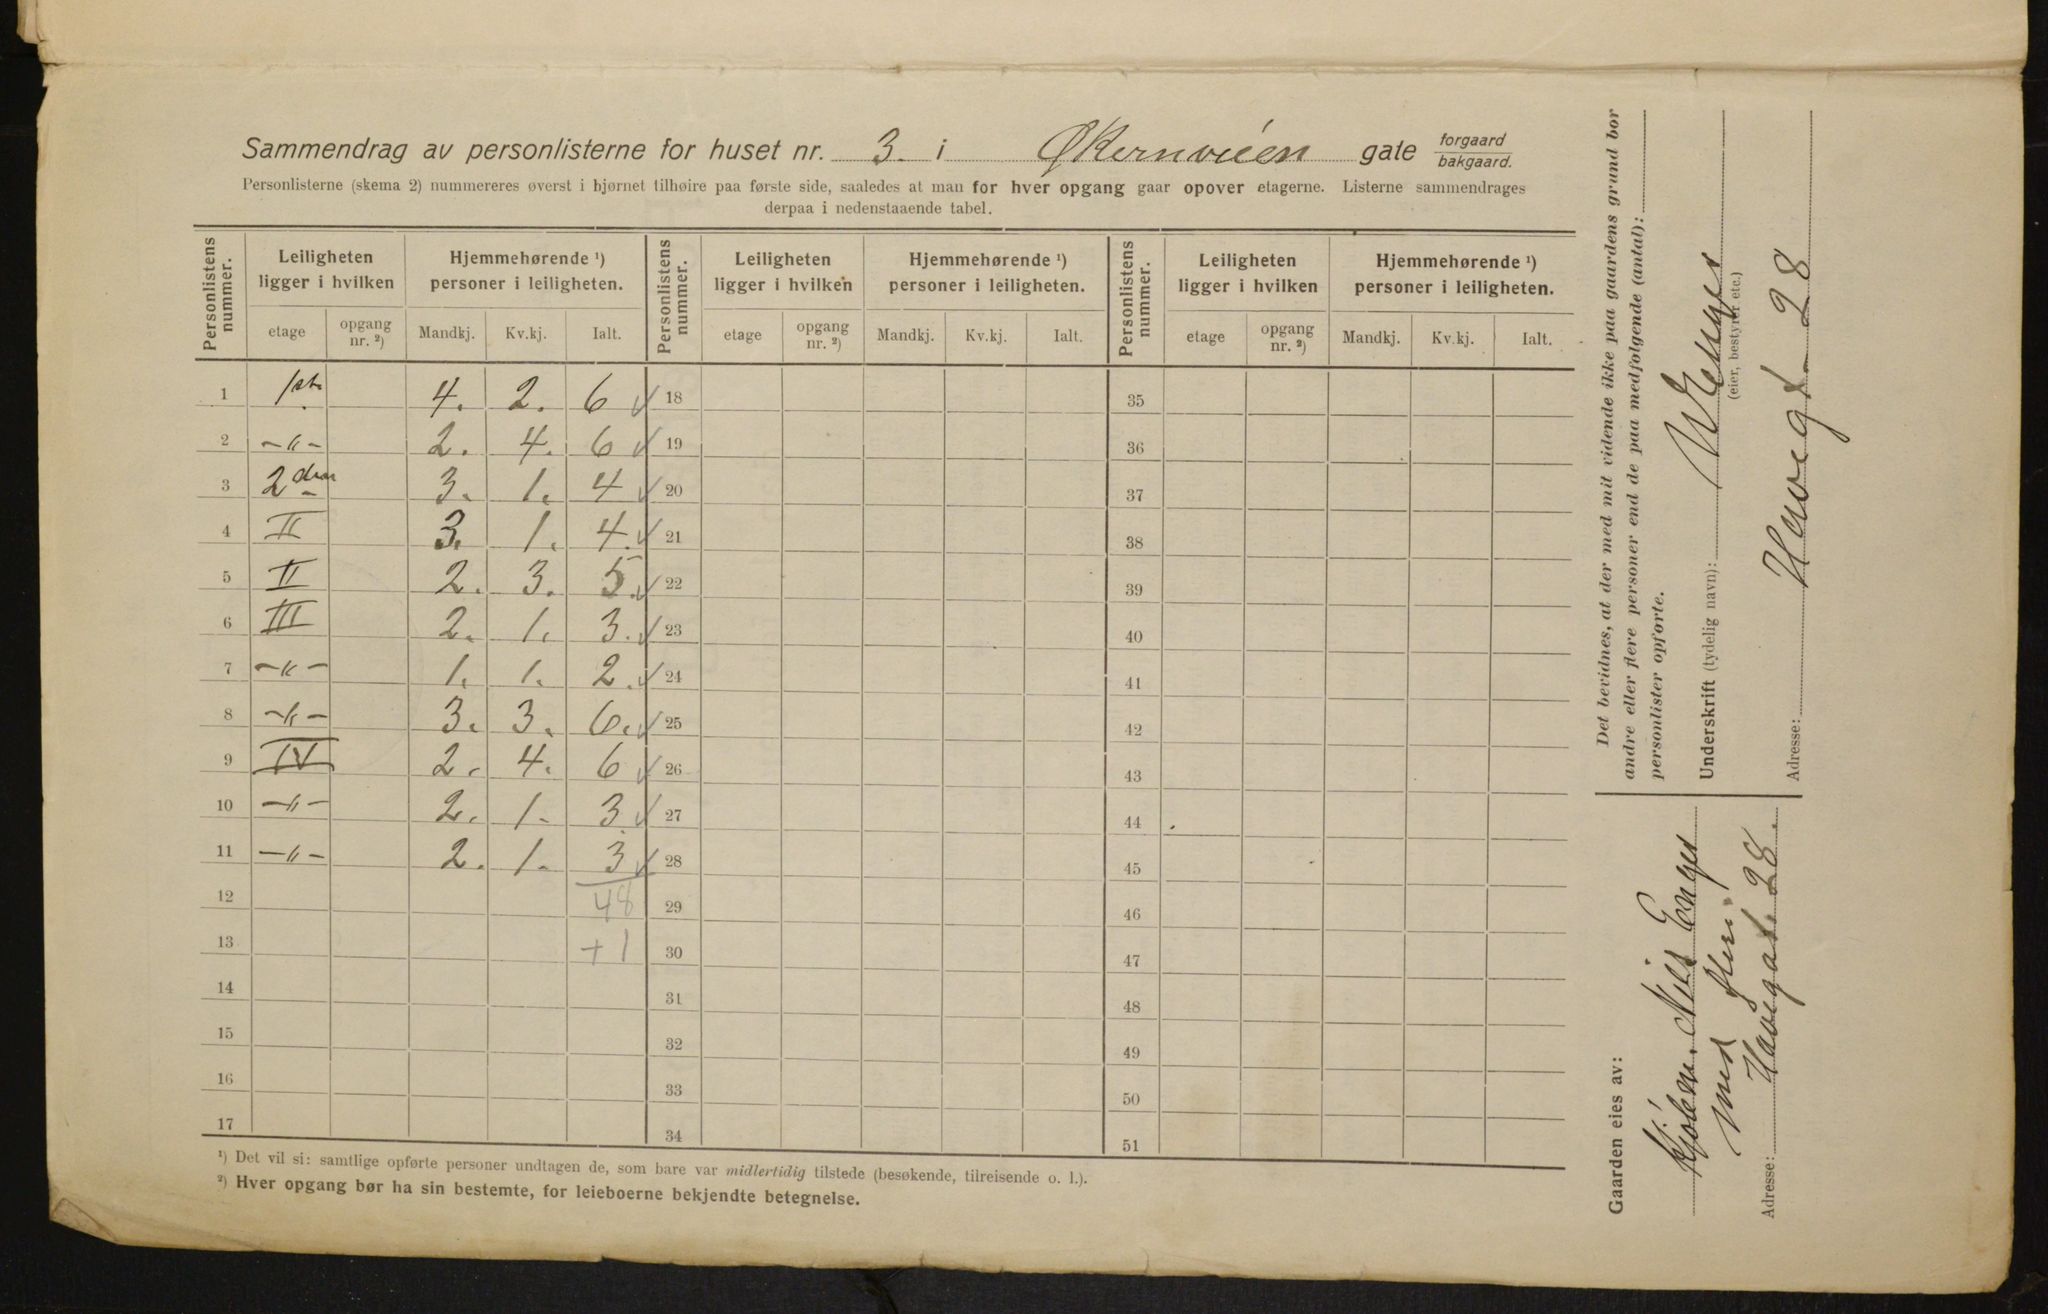 Sammendrag av personlisterne for huset nr. 3. i Økernveien gate forgaard bakgaard.
Personlisterne (skema 2) nummereres øverst i hjørnet tilhøire paa første side, saaledes at man for hver opgang gaar opover etagerne. Listerne sammendrages
derpaa i nedenstaaende tabel.
Personlistens nummer. Leiligheten ligger i hvilken Hjemmehørende ¹) personer i leiligheten. Personlistens nummer. Leiligheten ligger i hvilken Hjemmehørende ¹) personer i leiligheten. Personlistens nummer. Leiligheten ligger i hvilken Hjemmehørende ¹) personer i leiligheten.
etage opgang nr. ²) Mandkj. Kv.kj. Ialt. etage opgang nr. ²) Mandkj. Kv.kj. Ialt. etage opgang nr. ²) Mandkj. Kv.kj. Ialt.
1 1ste 4. 2. 6 18 35
2 -"- 2. 4. 6 19 36
3 2den 3. 1. 4 20 37
4 II 3. 1. 4. 21 38
5 II 2. 3. 5. 22 39
6 III 2. 1. 3. 23 40
7 -"- 1. 1. 2. 24 41
8 -"- 3. 3. 6. 25 42
9 IV 2. 4. 6 26 43
10 -"- 2. 1. 3 27 44
11 -"- 2. 1. 3 28 45
12 48 29 46
13 +1 30 47
14 31 48
15 32 49
16 33 50
17 34 51
¹) Det vil si: samtlige opførte personer undtagen de, som bare var midlertidig tilstede (besøkende, tilreisende o. l.).
²) Hver opgang bør ha sin bestemte, for leieboerne bekjendte betegnelse.
Det bevidnes, at der med mit vidende ikke paa gaardens grund bor
andre eller flere personer end de paa medfølgende (antal):
personlister opførte.
Underskrift (tydelig navn):
(eier, bestyrer etc.)
Adresse: Hovegt 28
Gaarden eies av:
Nils Enger
med
Adresse: Hovegat. 28.